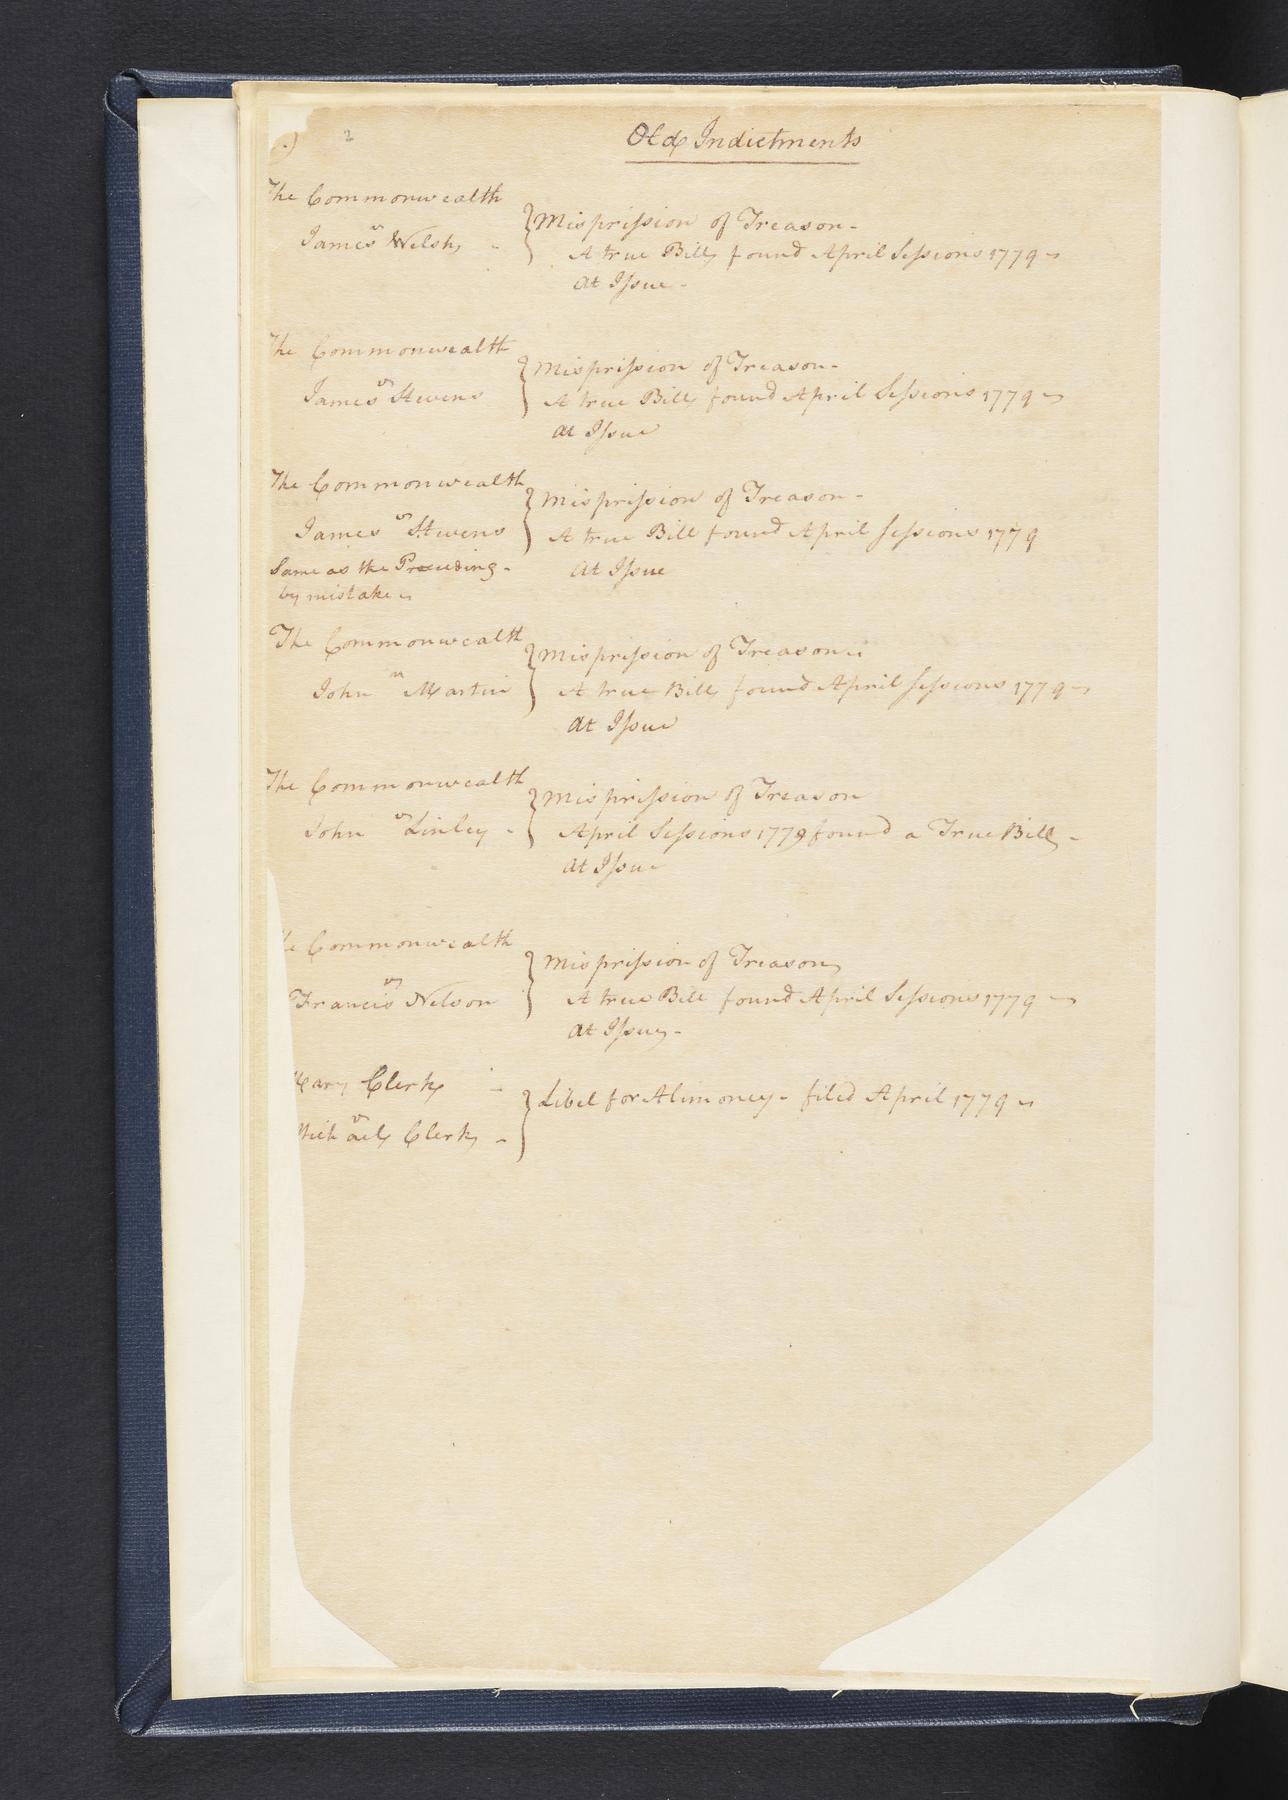 2
Old Indictments
The Commonwealth
vs
James Welsh -
Misprission of Treason -
A true Bill found April Sessions 1779 -
At Issue -
The Commonwealth
vs
James Stevens
Misprission of Treason -
A true Bill found April Sessions 1779 -
At Issue
The Commonwealth
vs
James Stevens
Same as the Preceeding -
by mistake -
Misprission of Treason -
A true Bill found April Sessions 1779
At Issue
The Commonwealth
vs
John Martin
Misprission of Treason -
A true Bill found April Sessions 1779 -
At Issue
The Commonwealth
vs
John Linley -
Misprission of Treason
April Sessions 1779 found a True Bill -
At Issue
he Commonwealth
vs
Francis Nelson
Misprission of Treason
A true Bill found April Sessions 1779 -
At Issue -
Mary Clerk -
vs
Michael Clerk -
Libel for Alimoney - filed April 1779 -